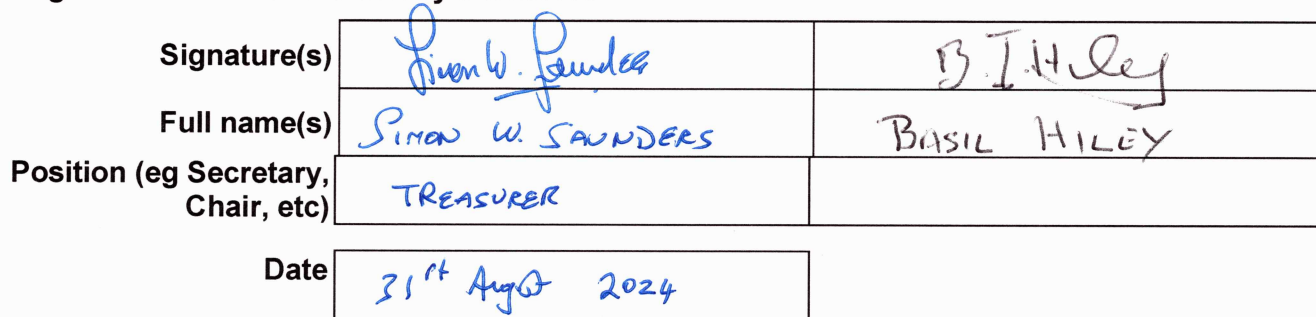 Signature(s) Simon W. Saunders B. I. Hiley
Full name(s) SIMON W. SAUNDERS BASIL HILEY
Position (eg Secretary, TREASURER
Chair, etc)
Date 31st August 2024